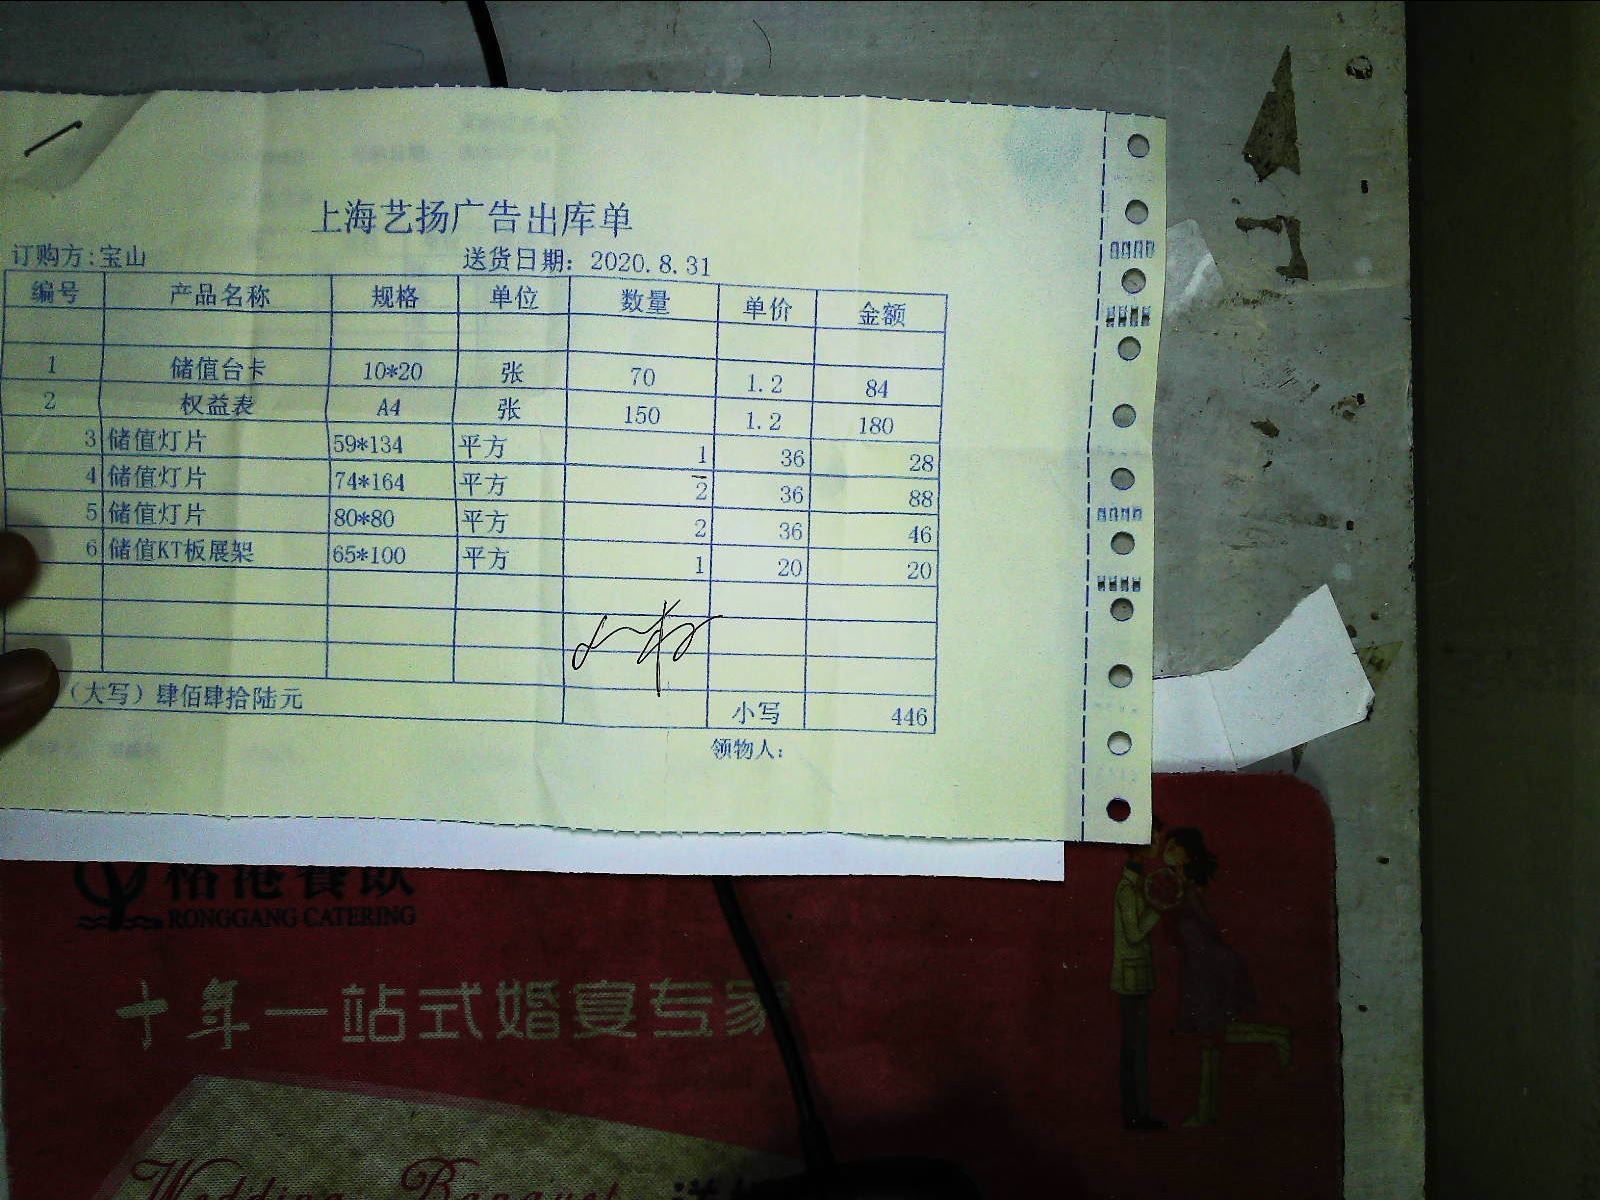 上海艺扬广告出库单
订购方:宝山 送货日期: 2020.8.31
编号 产品名称 规格 单位 数量 单价 金额
1 储值台卡 10*20 张 70 1.2 84
2 权益表 A4 张 150 1.2 180
3 储值灯片 59*134 平方 1 36 28
4 储值灯片 74*164 平方 2 36 88
5 储值灯片 80*80 平方 2 36 46
6 储值KT板展架 65*100 平方 1 20 20
(大写)肆佰肆拾陆元 小写 446
领物人:
RONGGANG CATERING
十年一站式婚宴专家
Wedding Banquet